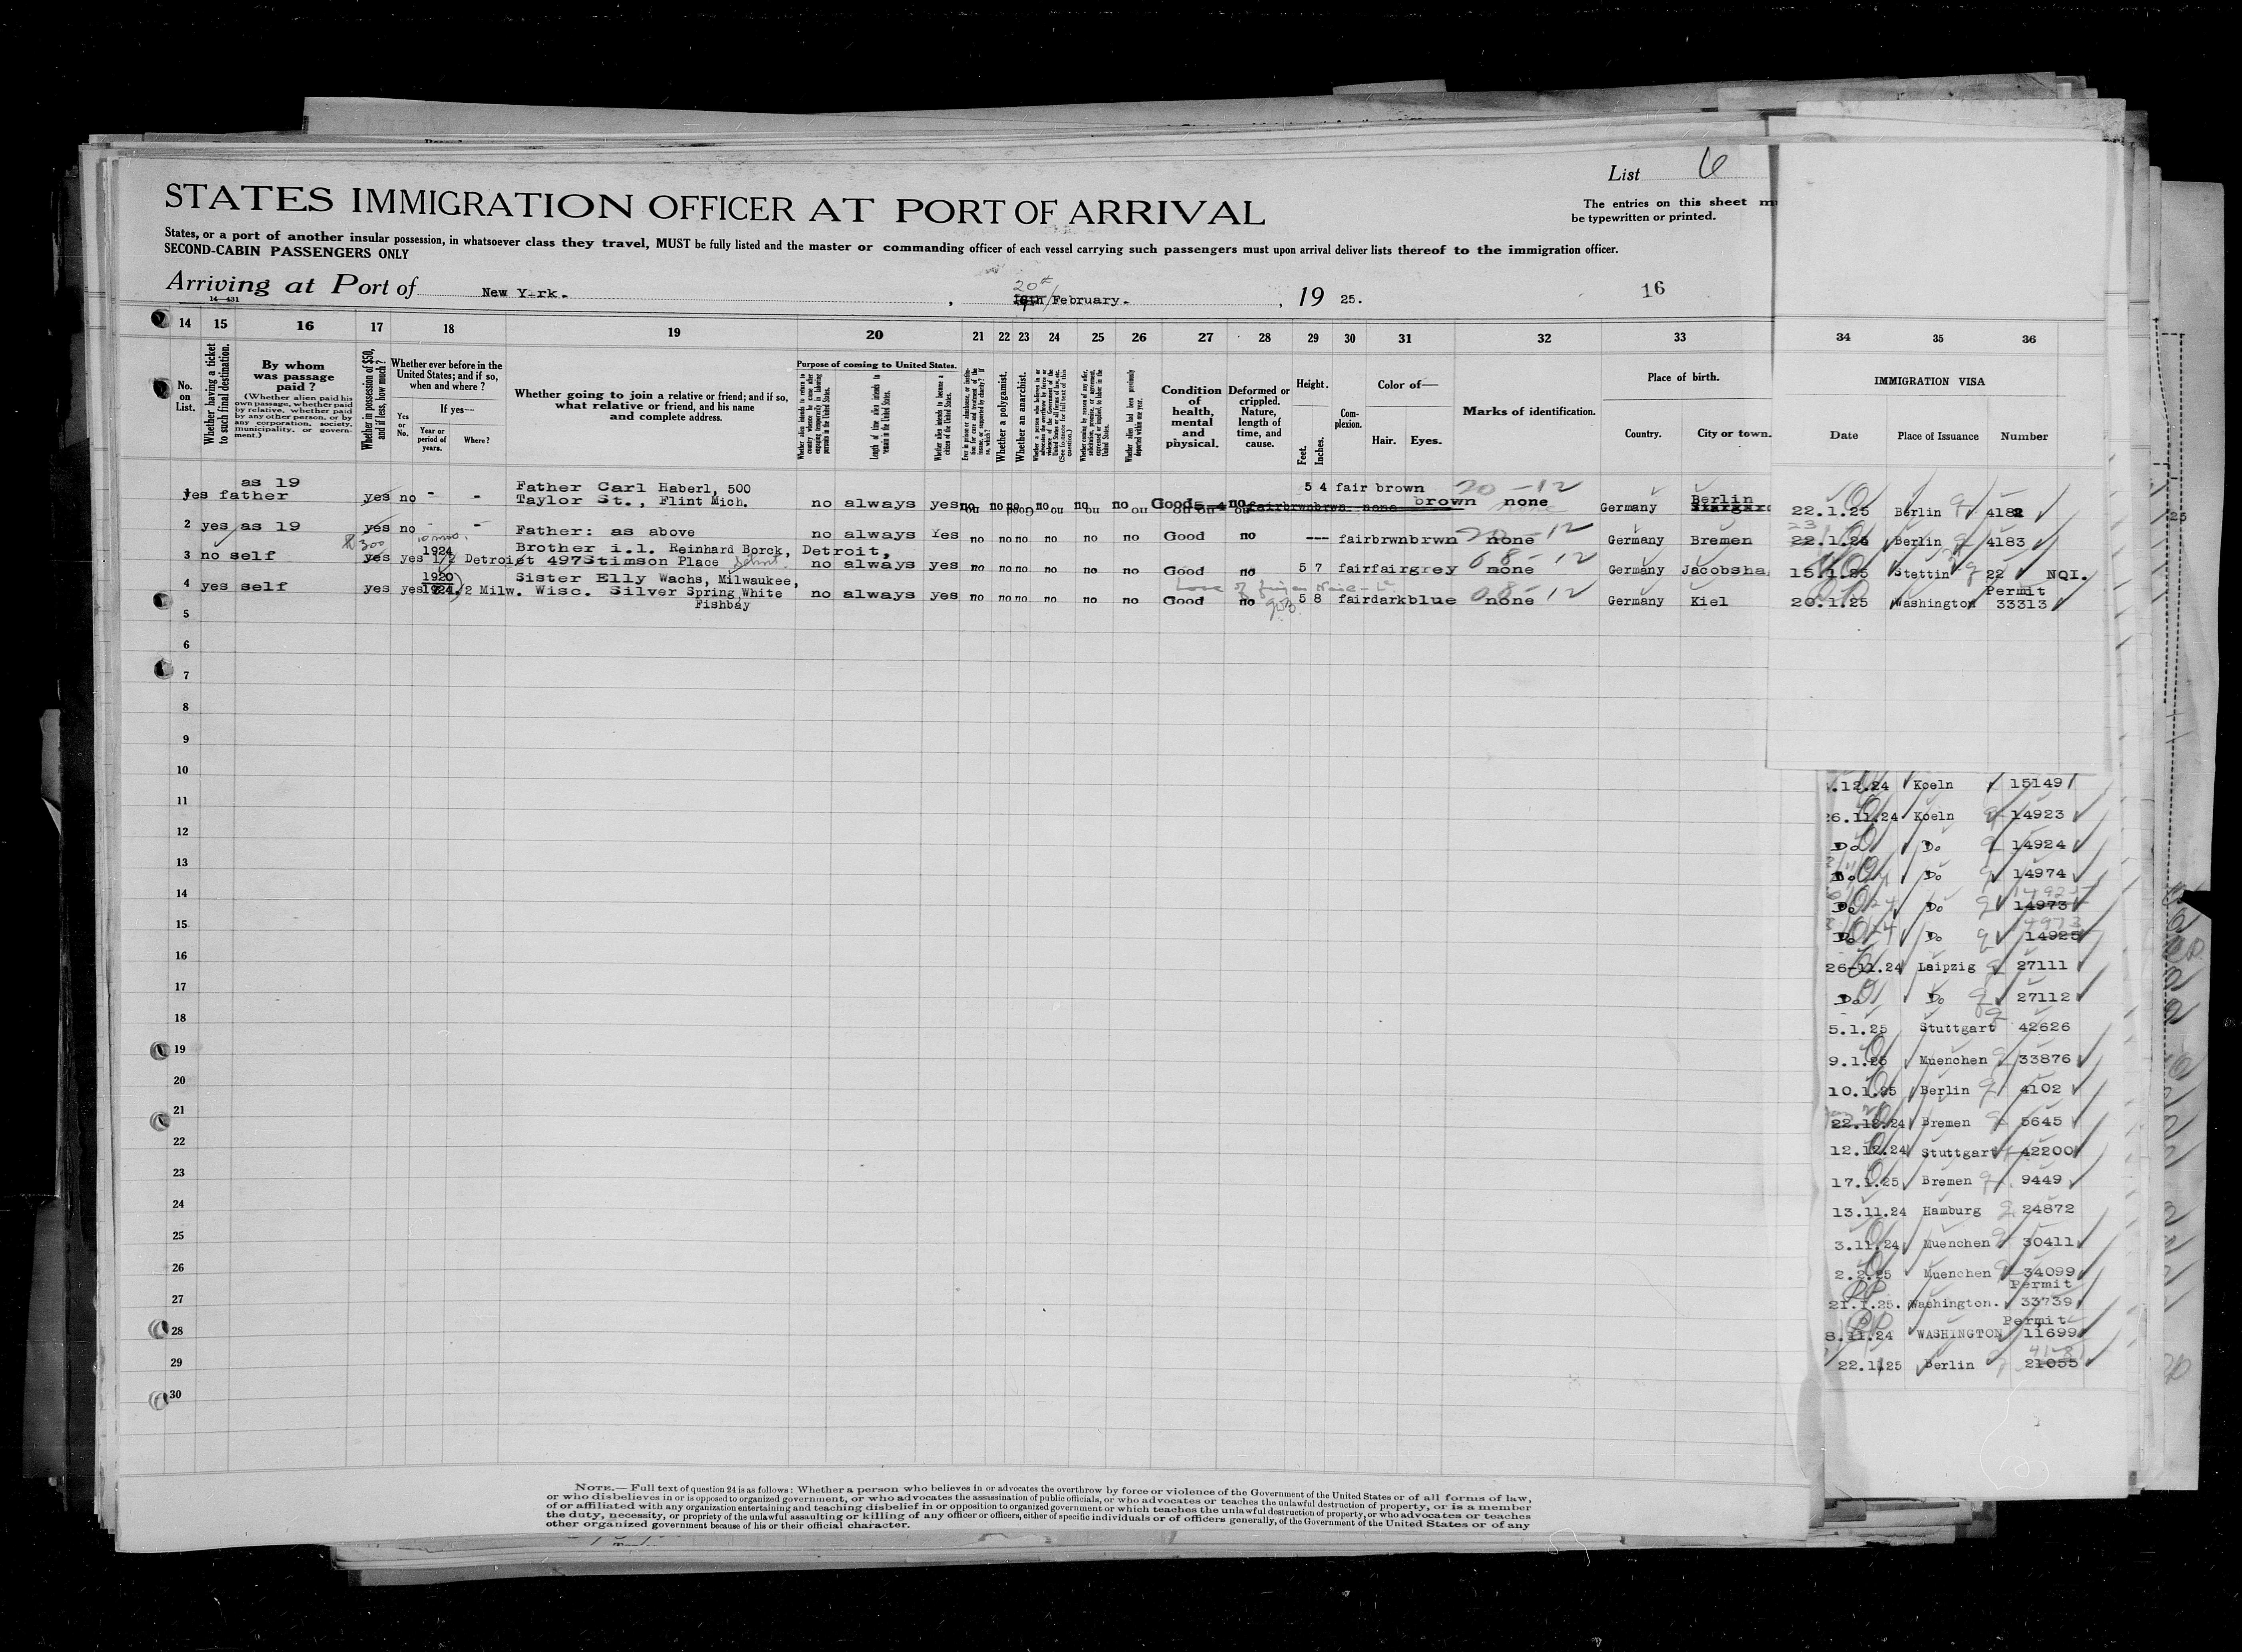 List 6
STATES IMMIGRATION OFFICER AT PORT OF ARRIVAL
The entries on this sheet
be typewritten or printed.
States, or a port of another insular possession, in whatsoever class they travel, MUST be fully listed and the master or commanding officer of each vessel carrying such passengers must upon arrival deliver lists thereof to the immigration officer.
SECOND-CABIN PASSENGERS ONLY
Arriving at Port of New Y-rk. , 20th February. , 19 25.
16
14—431
14 15 16 17 18 19 20 21 22 23 24 25 26 27 28 29 30 31 32 33 34 35 36
No. on List.
Whether having a ticket to such final destination.
By whom was passage paid?
(Whether alien paid his own passage, whether paid by relative, whether paid by any other person, or by any corporation, society, municipality, or government.)
Whether in possession of $50, and if less, how much?
Whether ever before in the United States; and if so, when and where?
Yes or No.
If yes—
Year or period of years.
Where?
Whether going to join a relative or friend; and if so, what relative or friend, and his name and complete address.
Purpose of coming to United States.
Length of time alien intends to remain in the United States.
Whether alien intends to become a citizen of the United States.
Whether a polygamist.
Whether an anarchist.
Whether alien had been previously deported within one year.
Condition of health, mental and physical.
Deformed or crippled. Nature, length of time, and cause.
Height.
Feet. Inches.
Complexion.
Color of—
Hair. Eyes.
Marks of identification.
Place of birth.
Country. City or town.
IMMIGRATION VISA
Date Place of Issuance Number
as 19 Father Carl Haberl, 500 5 4 fair brown 20-12 Berlin
yes father yes no - - Taylor St., Flint Mich. no always yes no no no no no no Good no brown none Germany 22.1.25 Berlin 4182
2 yes as 19 yes no - - Father: as above no always Yes no no no no no no Good no --- fair brwn brwn 20-12 none Germany Bremen 23 22.1.25 Berlin 4183
300 1924 Brother i.l. Reinhard Borck, Detroit,
3 no self yes yes 1/2 Detroit 497 Stimson Place Detroit no always yes no no no no no no Good no 5 7 fair fair grey 08-12 none Germany Jacobsha 15.1.25 Stettin 22 NQI.
1920 Sister Elly Wachs, Milwaukee, Permit
4 yes self yes yes 1924 1/2 Milw. Wisc. Silver Spring White no always yes no no no no no no Good no 5 8 fair dark blue 08-12 none Germany Kiel 20.1.25 Washington 33313
Fishbay
5
6
7
8
9
10
.12.24 Koeln 15149
11
26.11.24 Koeln 14923
12
Do Do 14924
13
Do Do 14974
14
14925
Do Do 14973
15
14973
Do Do 14925
16
26-11.24 Leipzig 27111
17
Do Do 27112
18
5.1.25 Stuttgart 42626
19
9.1.25 Muenchen 33876
20
10.1.25 Berlin 4102
21
22.12.24 Bremen 5645
22
12.12.24 Stuttgart 42200
23
17.1.25 Bremen 9449
24
13.11.24 Hamburg 24872
25
3.11.24 Muenchen 30411
26
2.2.25 Muenchen 34099
27
Permit
21.1.25. Washington. 33739
28
Permit
8.11.24 WASHINGTON 11699
29
4181
22.1.25 Berlin 21055
30
NOTE.—Full text of question 24 is as follows: Whether a person who believes in or advocates the overthrow by force or violence of the Government of the United States or of all forms of law,
or who disbelieves in or is opposed to organized government, or who advocates the assassination of public officials, or who advocates or teaches the unlawful destruction of property, or is a member
of or affiliated with any organization entertaining and teaching disbelief in or opposition to organized government or which teaches the unlawful destruction of property, or who advocates or teaches
the duty, necessity, or propriety of the unlawful assaulting or killing of any officer or officers, either of specific individuals or of officers generally, of the Government of the United States or of any
other organized government because of his or their official character.